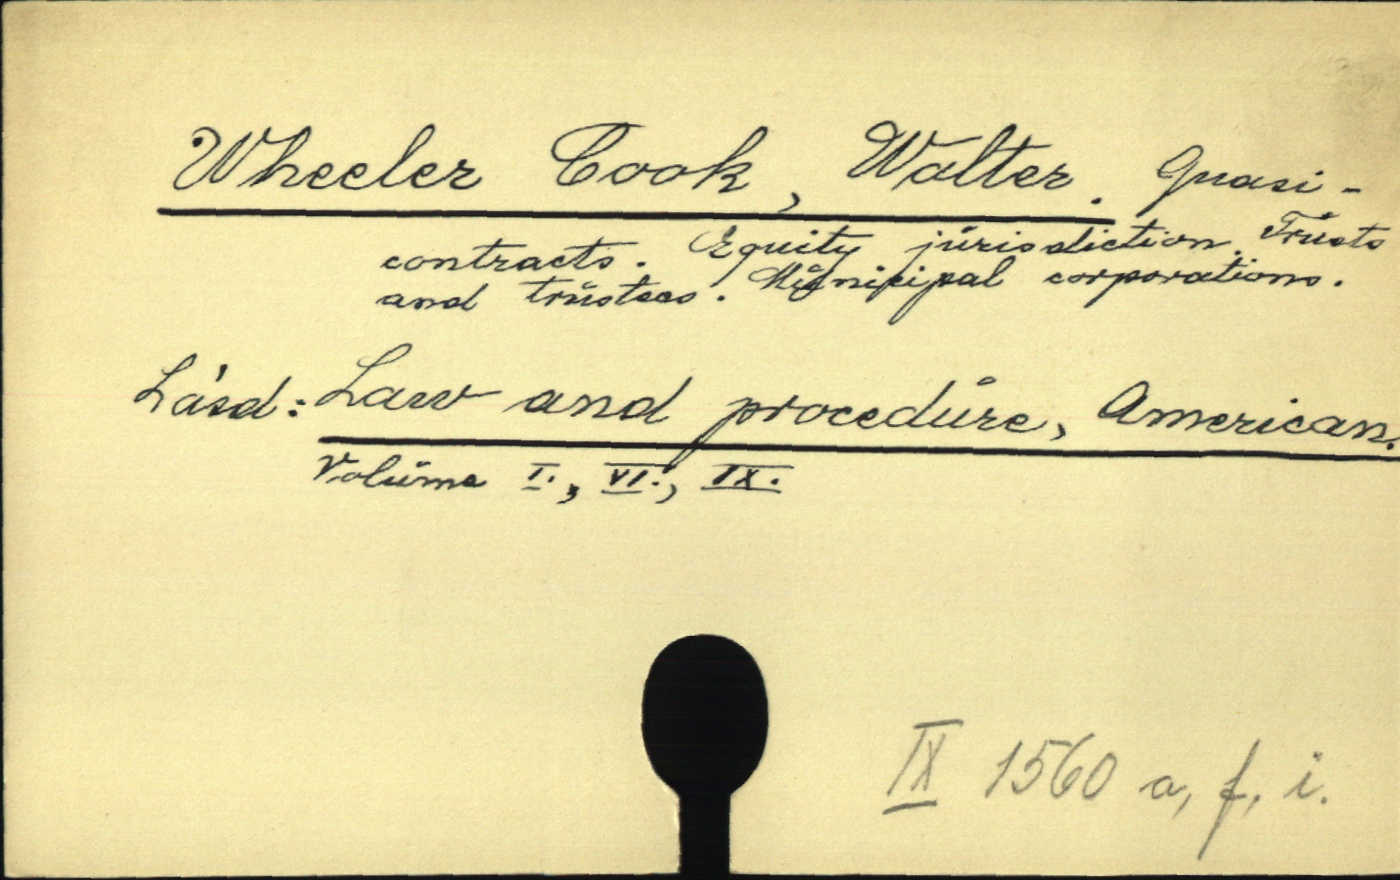 Wheeler Cook, Walter. Quasi-
contracts. Equity jurisdiction. Trusts
and trustees. Municipal corporations.
Lásd: Law and procedure, American.
Volume I., VI., IX.
IX 1560 a, f, i.